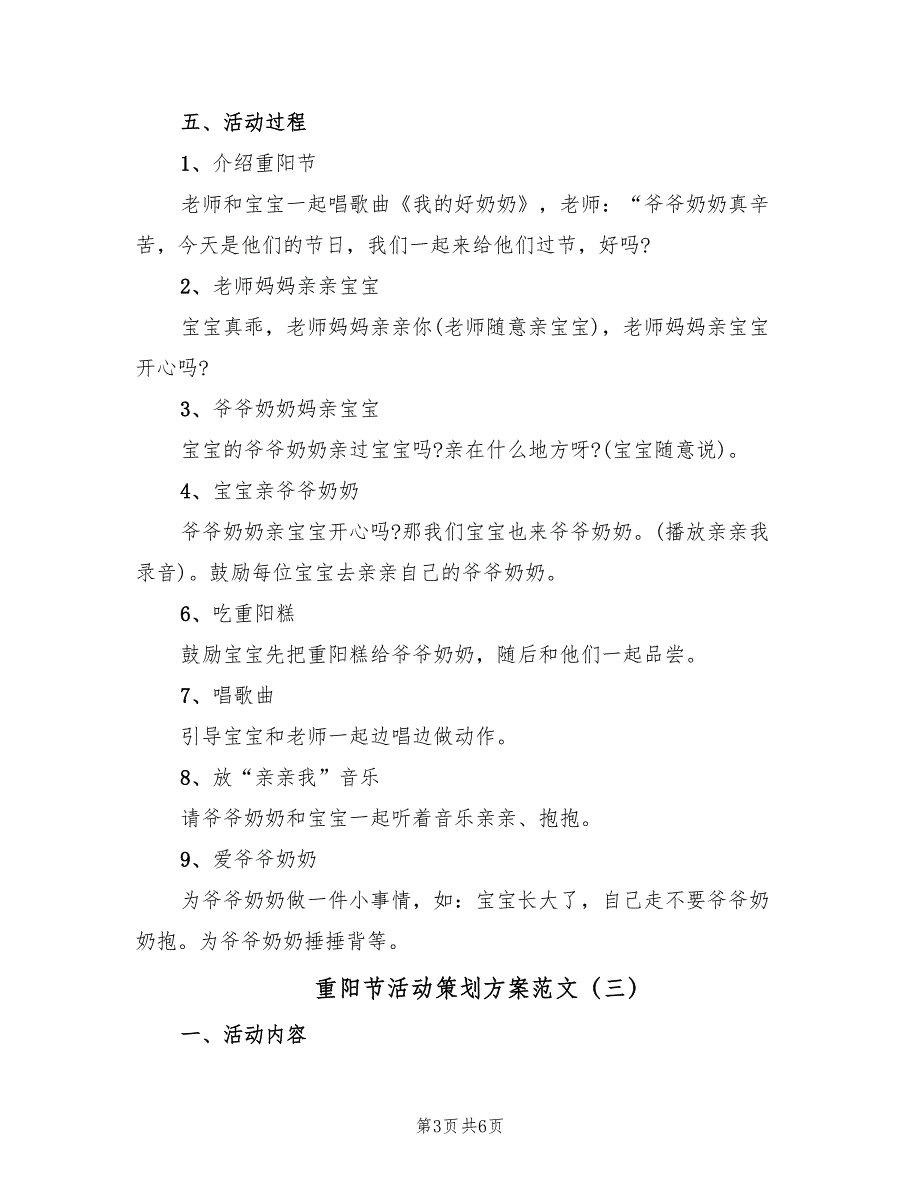 五、活动过程
1、介绍重阳节
老师和宝宝一起唱歌曲《我的好奶奶》，老师：“爷爷奶奶真辛
苦，今天是他们的节日，我们一起来给他们过节，好吗?
2、老师妈妈亲亲宝宝
宝宝真乖，老师妈妈亲亲你(老师随意亲宝宝)，老师妈妈亲宝宝
开心吗?
3、爷爷奶奶妈亲宝宝
宝宝的爷爷奶奶亲过宝宝吗?亲在什么地方呀?(宝宝随意说)。
4、宝宝亲爷爷奶奶
爷爷奶奶亲宝宝开心吗?那我们宝宝也来爷爷奶奶。(播放亲亲我
录音)。鼓励每位宝宝去亲亲自己的爷爷奶奶。
6、吃重阳糕
鼓励宝宝先把重阳糕给爷爷奶奶，随后和他们一起品尝。
7、唱歌曲
引导宝宝和老师一起边唱边做动作。
8、放“亲亲我”音乐
请爷爷奶奶和宝宝一起听着音乐亲亲、抱抱。
9、爱爷爷奶奶
为爷爷奶奶做一件小事情，如：宝宝长大了，自己走不要爷爷奶
奶抱。为爷爷奶奶捶捶背等。
重阳节活动策划方案范文（三）
一、活动内容
第3页 共6页